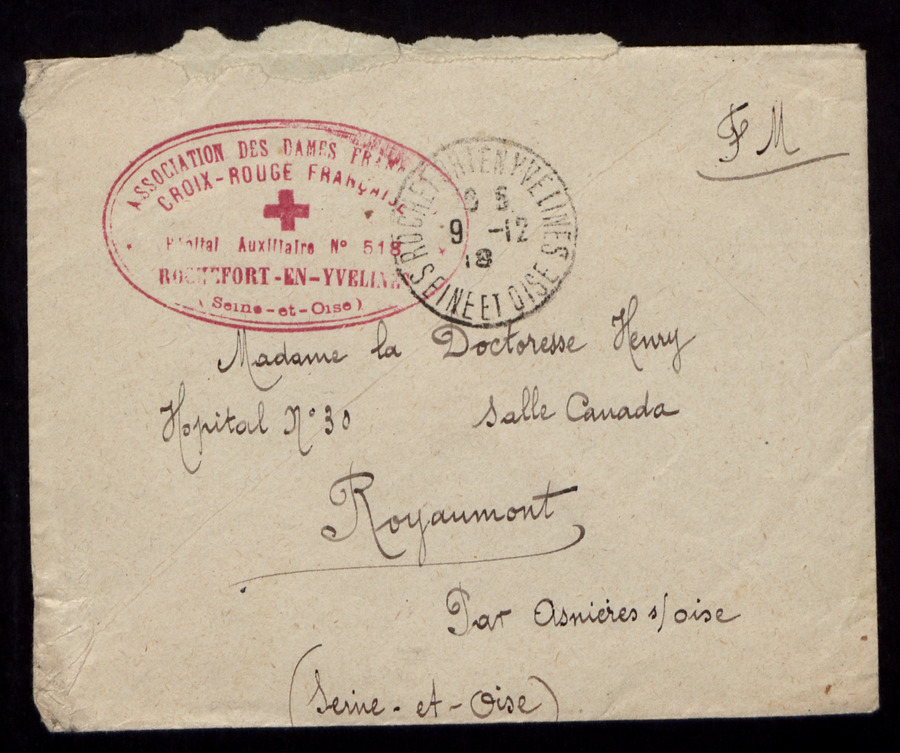 F M
ASSOCIATION DES DAMES
CROIX-ROUGE FRANÇAISE
Auxiliaire N° 518
ROCHEFORT-EN-YVELINES
(Seine-et-Oise)
ROCHEFORT EN YVELINES
9 -12
18
SEINE ET OISE
Madame la Doctoresse Henry
Hopital N° 30 Salle Canada
Royaumont
Par Asnières s/oise
(Seine-et-Oise)